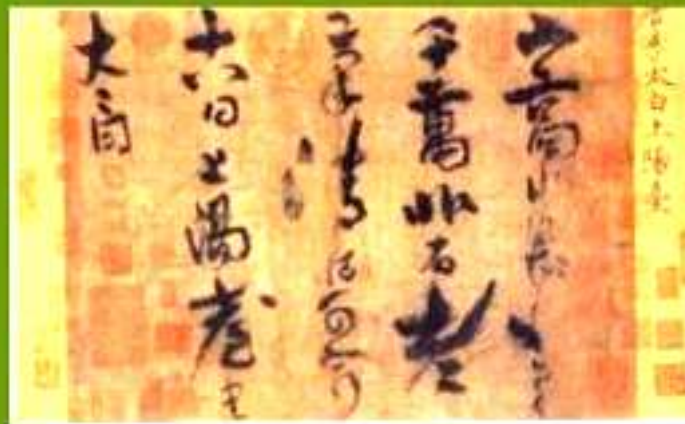 唐李太白上陽臺
山高水長物象
千萬非有老
筆清壯何可窮
十八日上陽臺書
太白